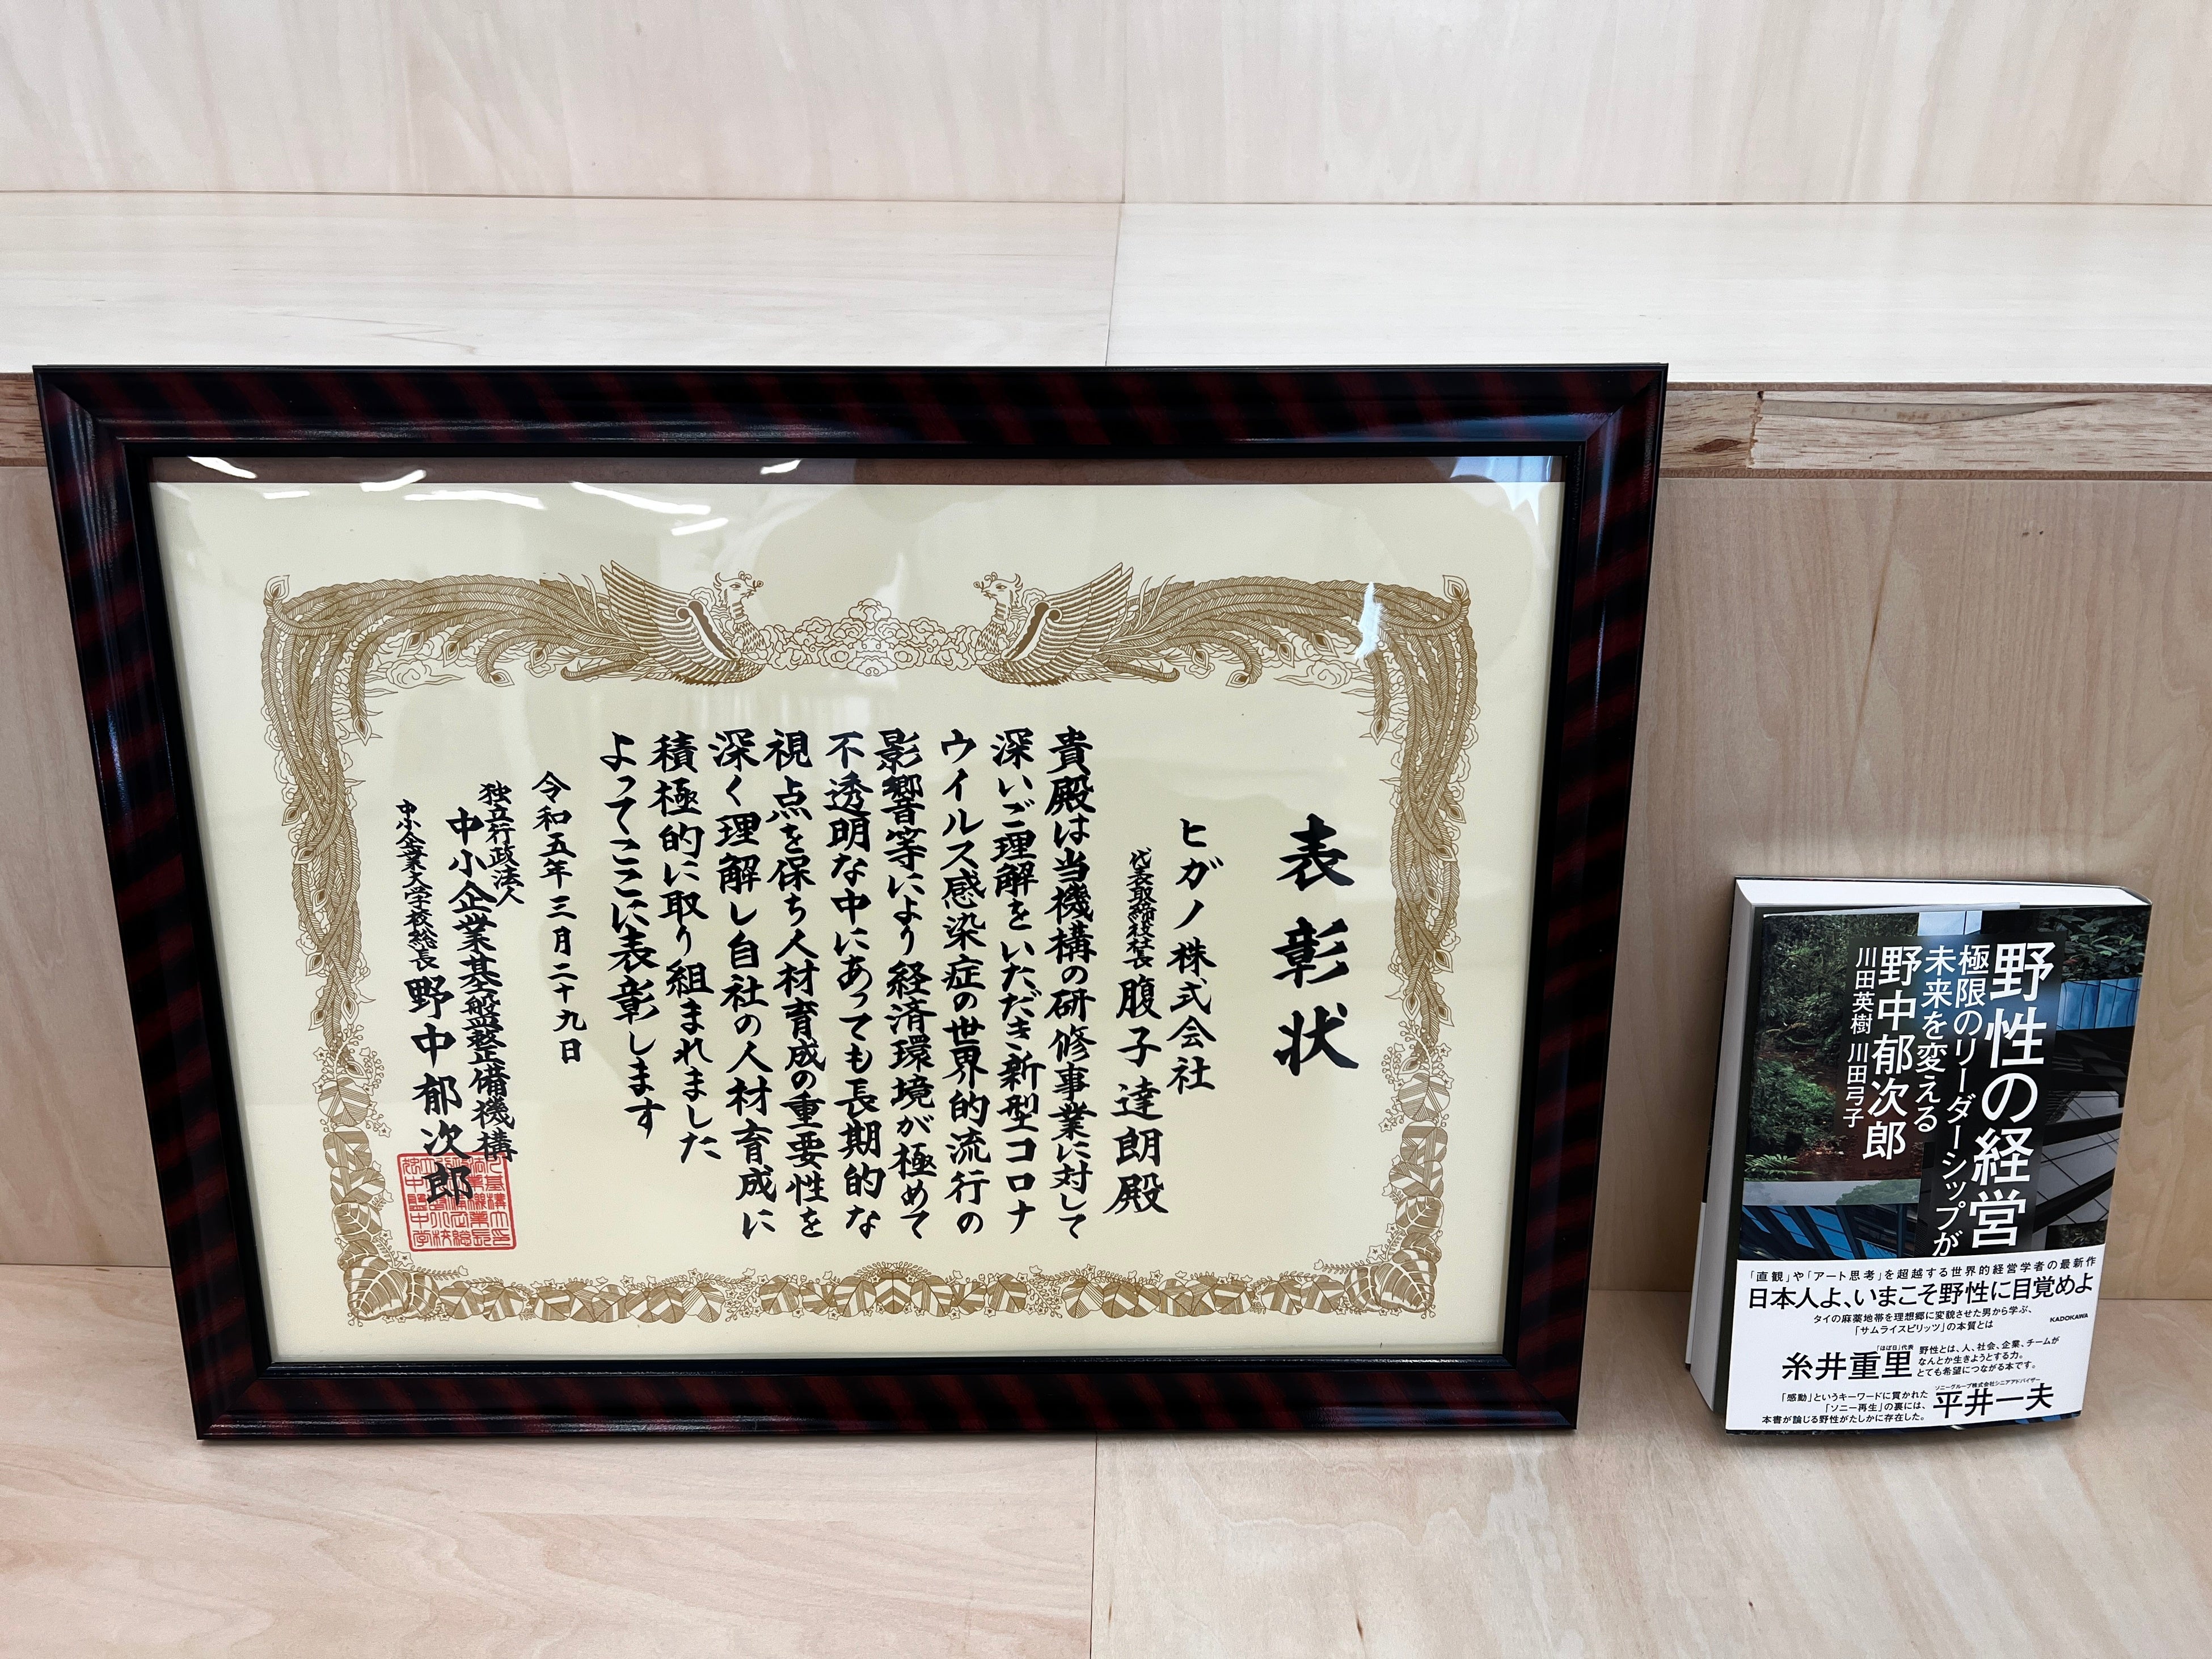 表彰状
ヒガノ株式会社
代表取締役社長 腹子達朗殿
貴殿は当機構の研修事業に対して
深いご理解をいただき新型コロナ
ウイルス感染症の世界的流行の
影響等により経済環境が極めて
不透明な中にあっても長期的な
視点を保ち人材育成の重要性を
深く理解し自社の人材育成に
積極的に取り組まれました
よってここに表彰します
令和五年三月二十九日
独立行政法人
中小企業基盤整備機構
中小企業大学校総長 野中郁次郎
野性の経営
極限のリーダーシップが
未来を変える
野中郁次郎
川田英樹 川田弓子
「直観」や「アート思考」を超越する世界的経営学者の最新作
日本人よ、いまこそ野性に目覚めよ
タイの麻薬地帯を理想郷に変貌させた男から学ぶ、
「サムライスピリッツ」の本質とは
KADOKAWA
「ほぼ日」代表
糸井重里
野性とは、人、社会、企業、チームが
なんとか生きようとする力。
とても希望につながる本です。
「感動」というキーワードに貫かれた
「ソニー再生」の裏には、
本書が論じる野性がたしかに存在した。
ソニーグループ株式会社シニアアドバイザー
平井一夫